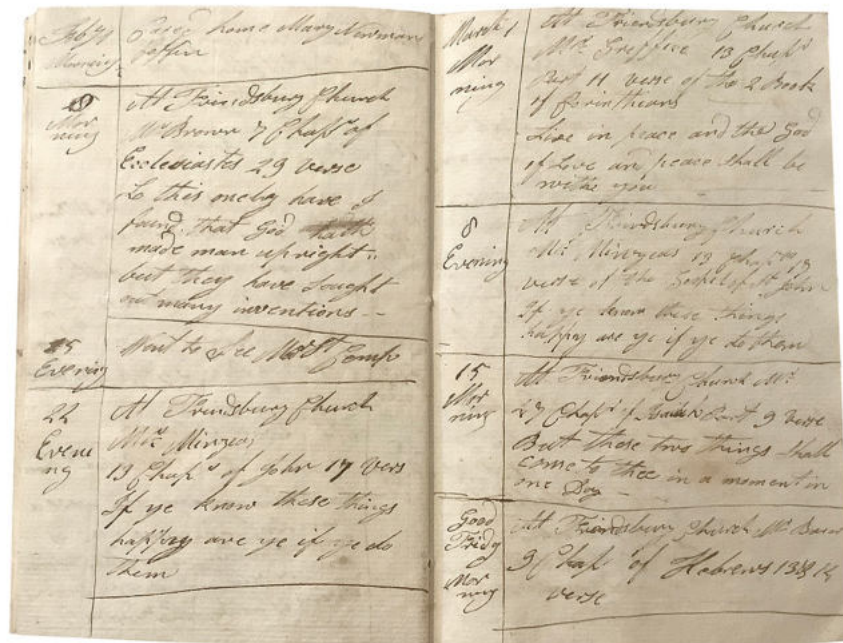 Feby 1 Morning
home Mary Newman
Coffin
8 Mor
ning
At Frindsbury Church
Mr Brown 7 Chapr of
Ecclesiastes 29 verse
Lo this onely have I
found that God hath
made man upright
but they have sought
out many inventions
15
Evening
Went to See
22
Eveni
ng
At Frindsbury Church
Mr Minzeas
13 Chapr of John 17 Vers
If ye know these things
happy are ye if ye do
them
March 1
Mor
ning
At Friendsbury Church
Mr 13 Chapr
Part 11 verse of the 2 Book
of Corintheans
Live in peace and the God
of Love and peace shall be
withe you
8
Evening
At Friendsbury Church
Mr Minzeas 13 Chapr
verse of the Gospel of St John
If ye know these things
happy are ye if ye do them
15
Mor
ning
At Friendsbury Church Mr
47 Chapr of Part 9 verse
But these two things shall
come to thee in a moment in
one Day
Good
Fridy
Mor
ning
At Friendsbury Church Mr
9 Chapr of Hebrews 13 & 14
verse